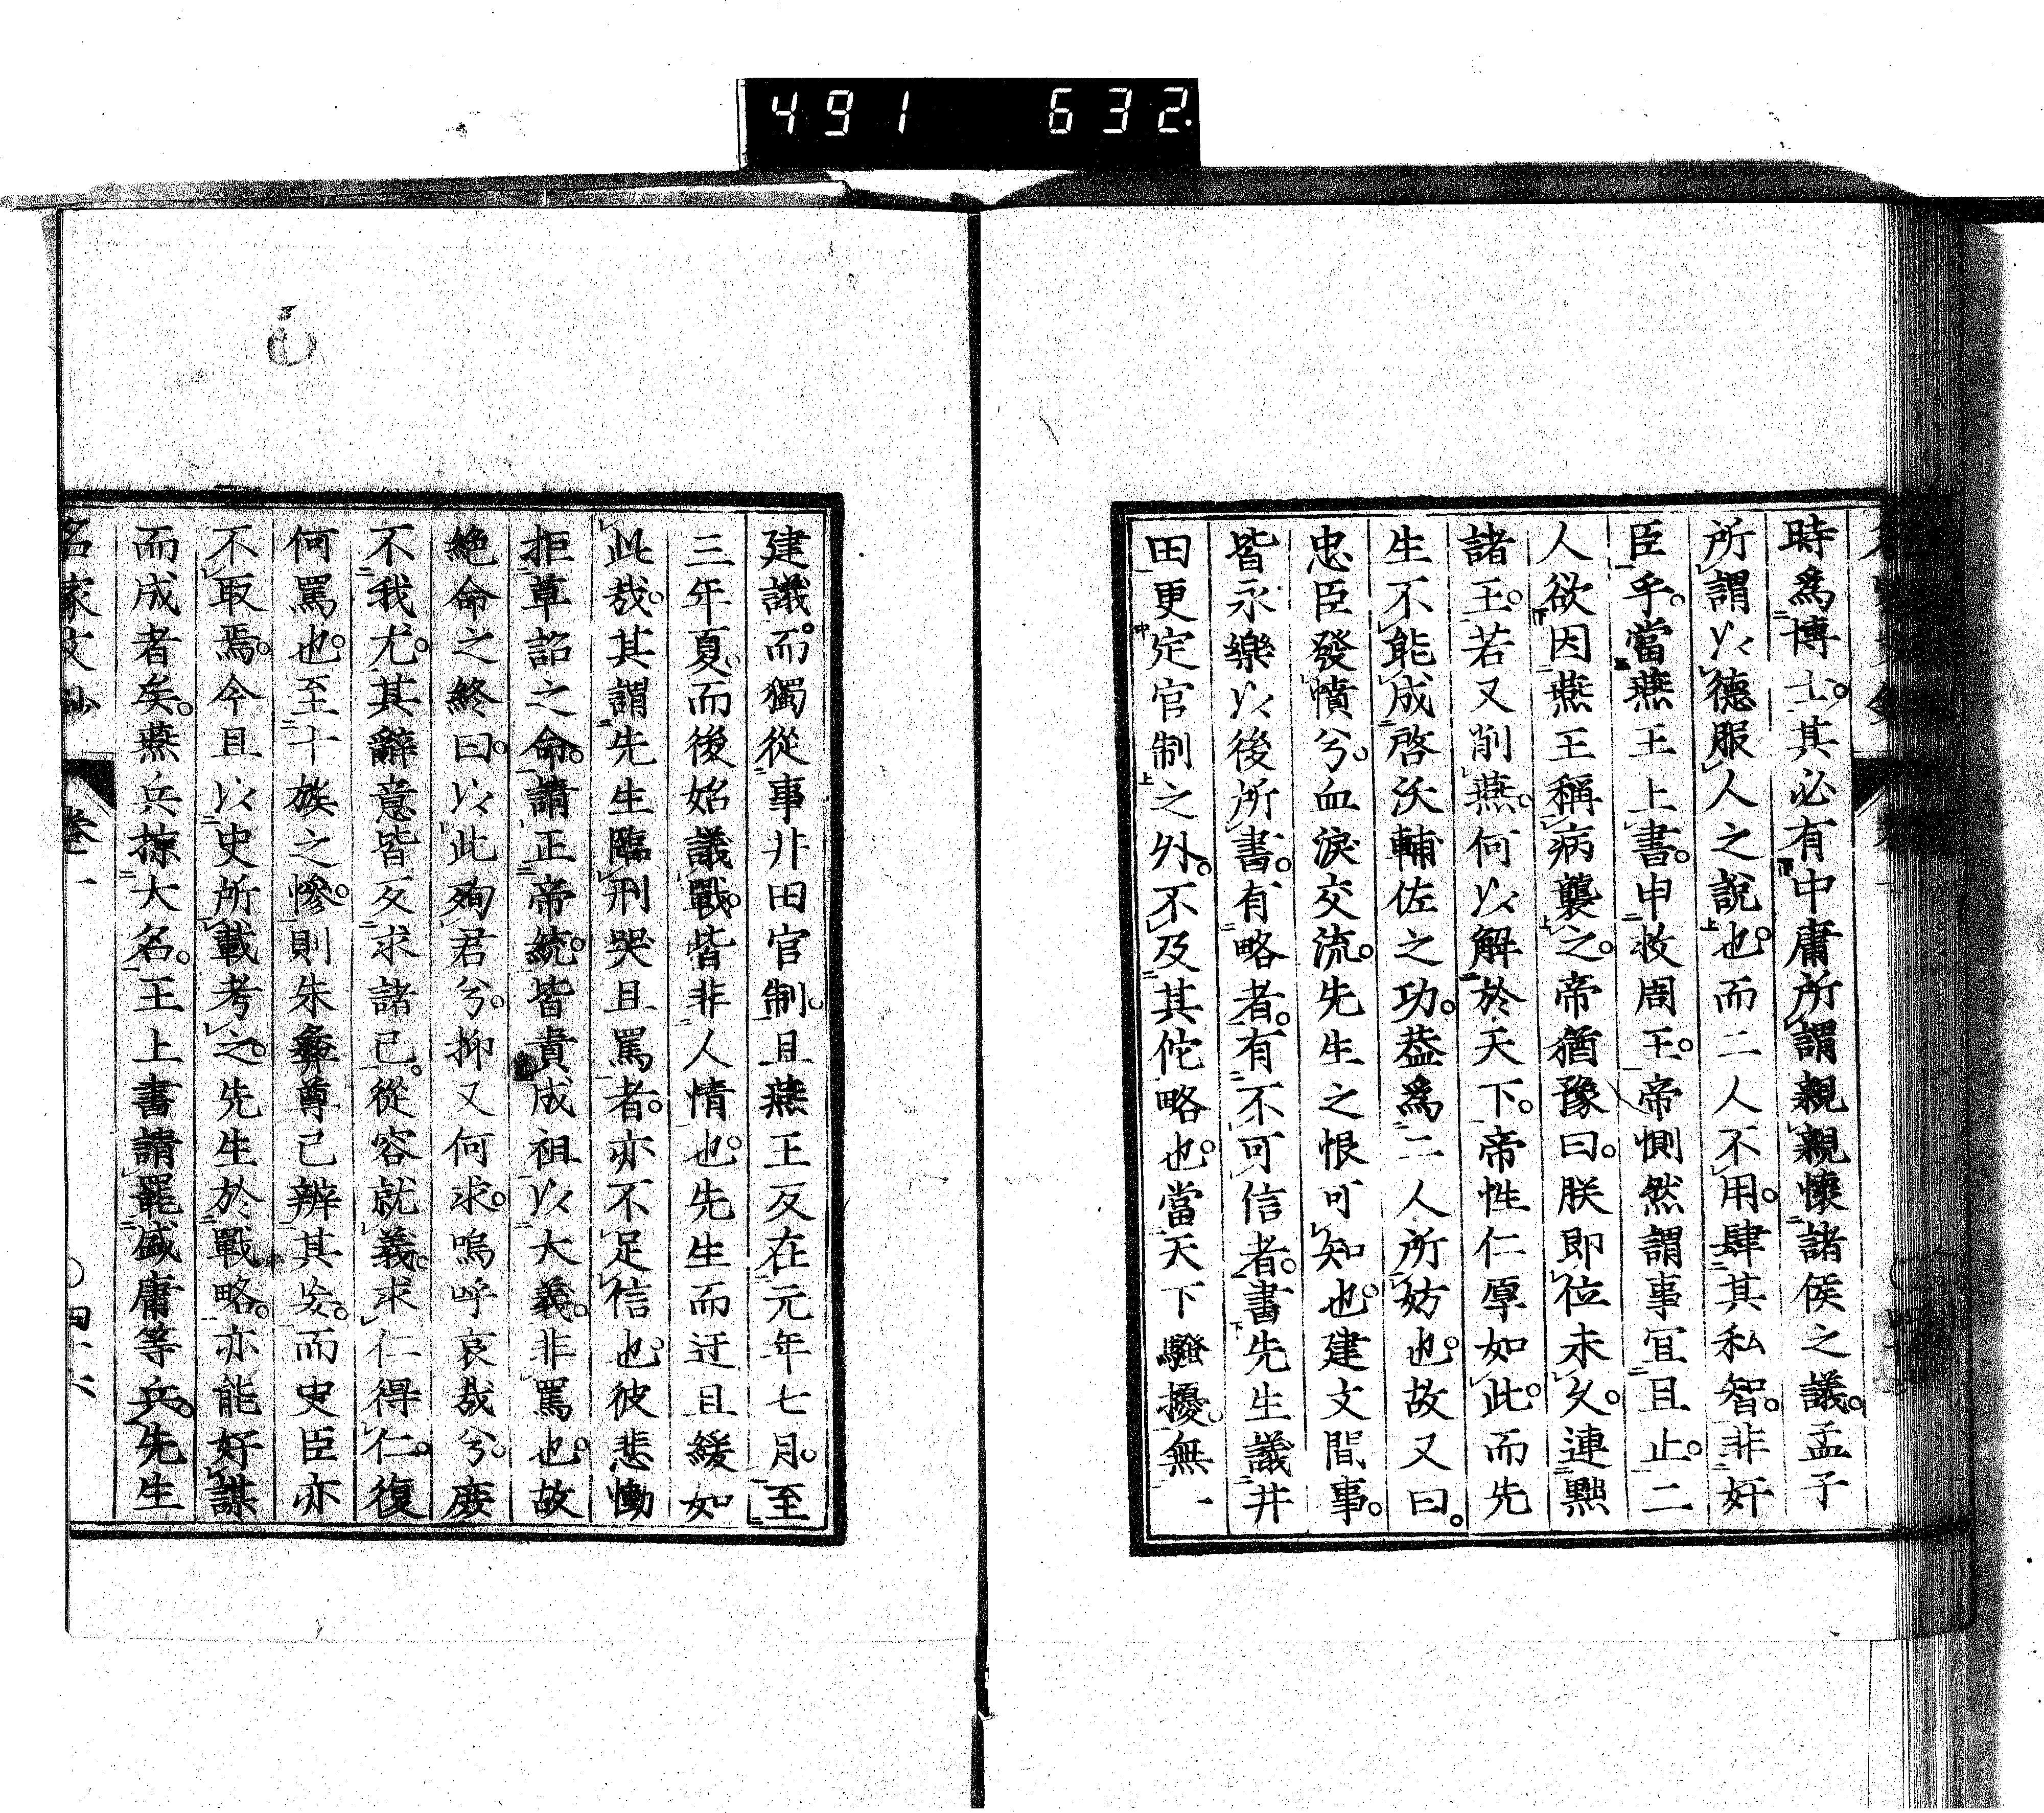 491 632
時爲博士。其必有中庸所謂親親懷諸侯之議。孟子
所謂以德服人之說也。而二人不用。肆其私智。非奸
臣乎。當燕王上書。申救周王。帝惻然謂事宜且止。二
人欲因燕王稱病襲之。帝猶豫曰。朕即位未久。連黜
諸王。若又削燕。何以解於天下。帝性仁厚如此。而先
生不能成啓沃輔佐之功。葢爲二人所妨也。故又曰。
忠臣發憤兮。血淚交流。先生之恨可知也。建文間事。
皆永樂以後所書。有略者。有不可信者。書先生議井
田更定官制之外。不及其佗略也。當天下騷擾。無一
建議。而獨從事井田官制。且燕王反在元年七月。至
三年夏。而後始議戰。皆非人情也。先生而迂且緩如
此哉。其謂先生臨刑哭且罵者。亦不足信也。彼悲慟
拒草詔之命。請正帝統。皆責成祖以大義。非罵也。故
絶命之終曰。以此殉君兮。抑又何求。嗚呼哀哉兮。庶
不我尤。其辭意皆反求諸己。從容就義。求仁得仁。復
何罵也。至十族之慘。則朱彝尊已辨其妄。而史臣亦
不取焉。今且以史所載考之。先生於戰略。亦能好謀
而成者矣。燕兵掠大名。王上書請罷盛庸等兵。先生
名家文鈔 卷一 四十六